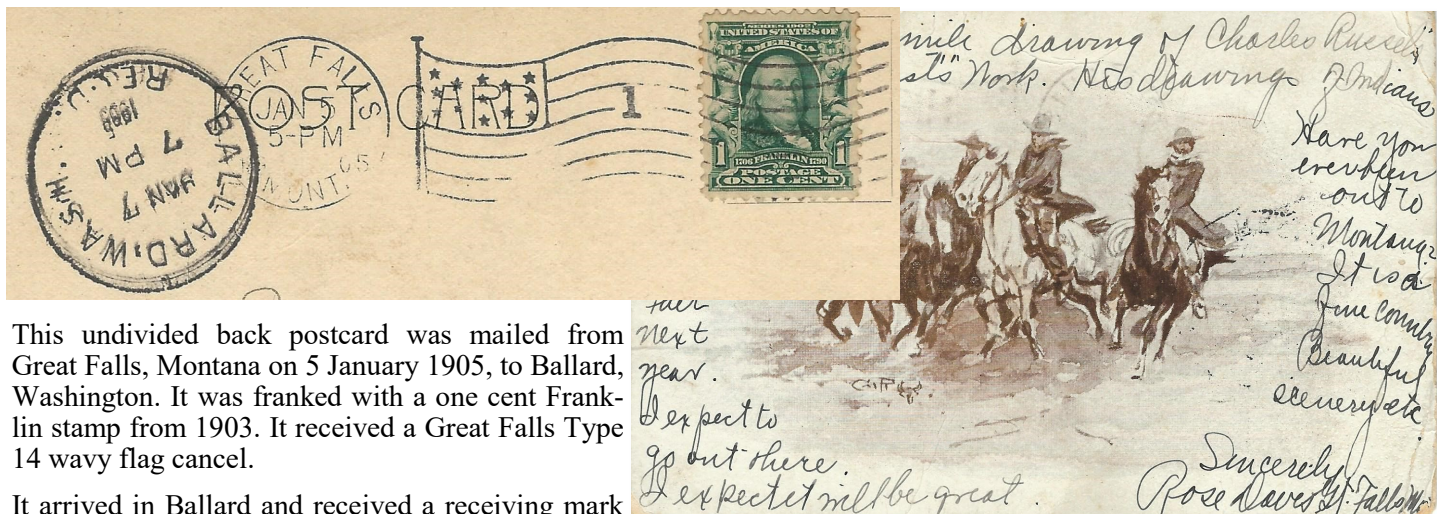 POST CARD
GREAT FALLS
JAN 5
5-PM
MONT.
05
1
SERIES 1902
UNITED STATES OF
AMERICA
1706 FRANKLIN 1790
1 1
POSTAGE
ONE CENT
BALLARD, WASH.
JAN 7
7 PM
1905
REC'D.
This undivided back postcard was mailed from
Great Falls, Montana on 5 January 1905, to Ballard,
Washington. It was franked with a one cent Frank-
lin stamp from 1903. It received a Great Falls Type
14 wavy flag cancel.
It arrived in Ballard and received a receiving mark
mile drawing of Charles Russels
Work. His drawings of Indians
Have you
ever been
out to
Montana?
It is a
fine country
Beautiful
scenery etc
Sincerely
Rose Daves Gt. Falls
Fair
next
year.
I expect to
go out there.
I expect it will be great.